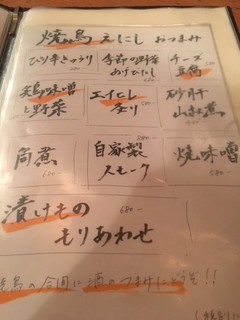 焼鳥 えにし おつまみ
ひり辛きゅうり
季節の野菜
あげびたし
チーズ
豆腐
鶏味噌
と野菜
エイヒレ
炙り
砂肝
山椒煮
角煮
自家製
スモーク
焼味噌
漬けもの
もりあわせ
焼鳥の合間に酒のつまみにどうぞ!!